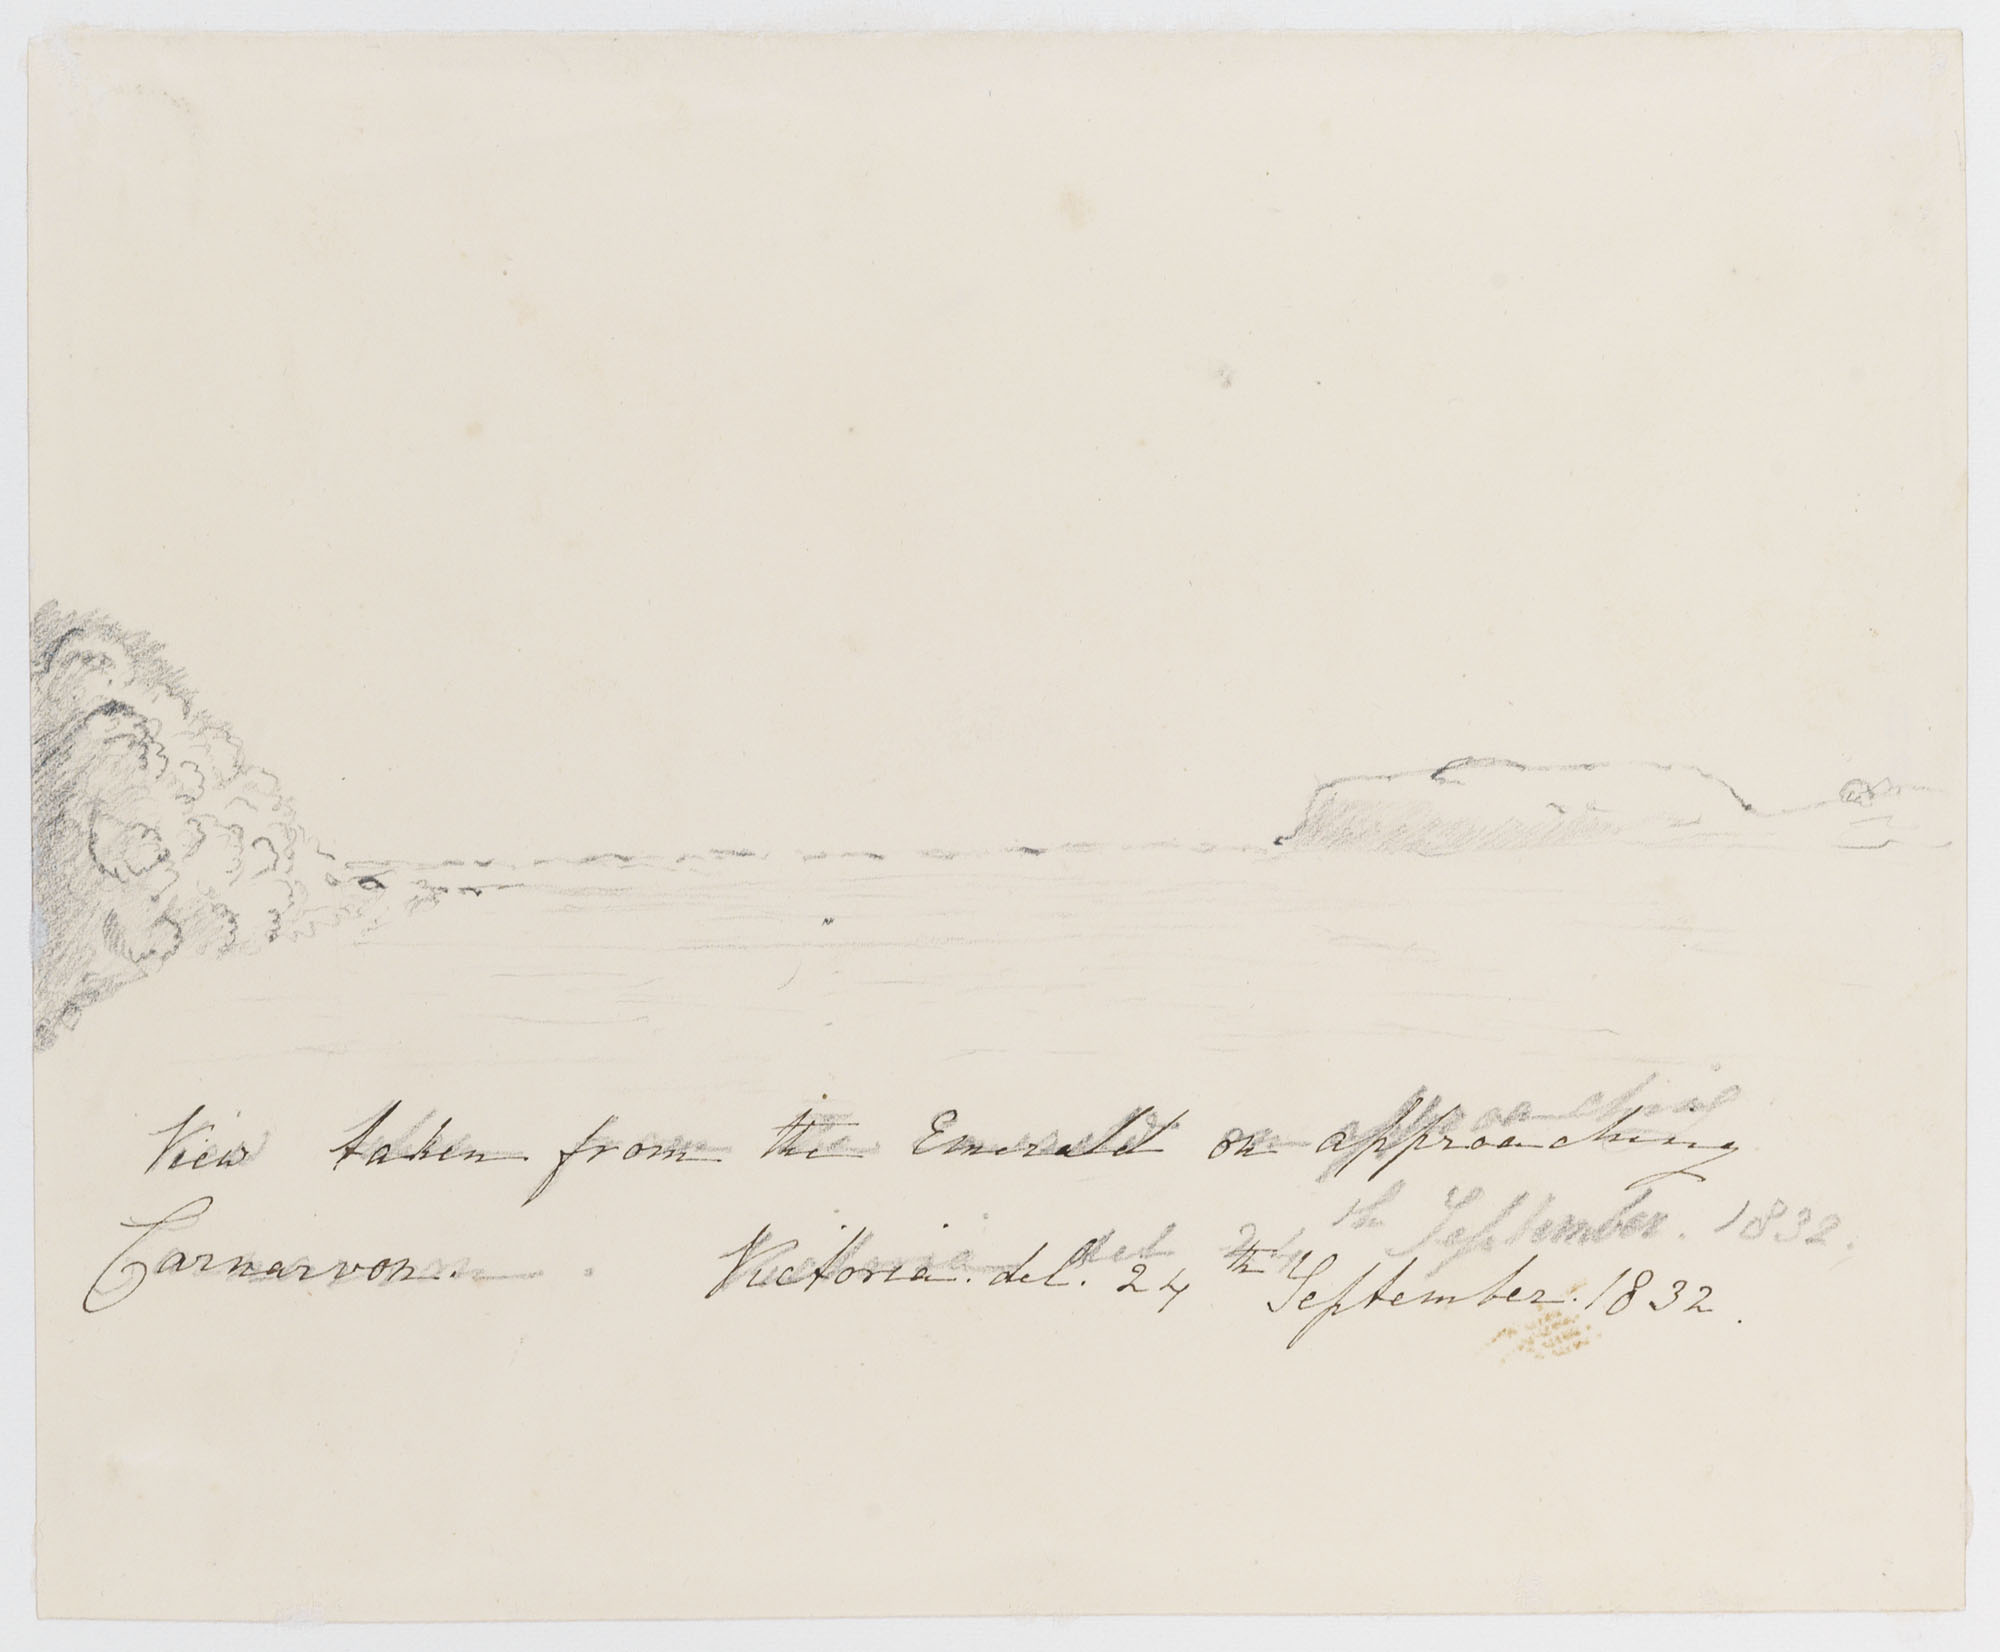 View taken from the Emerald on approaching
Carnarvon. Victoria. del. 24th September. 1832.